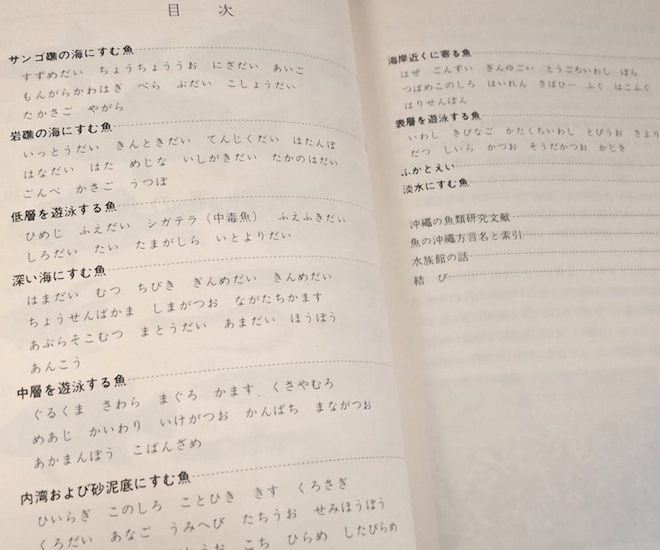 目　次
サンゴ礁の海にすむ魚
すずめだい　ちょうちょううお　にざだい　あいご
もんがらかわはぎ　べら　ぶだい　こしょうだい
たかさご　やがら
岩礁の海にすむ魚
いっとうだい　きんときだい　てんじくだい　はたんぽ
はなだい　はた　めじな　いしがきだい　たかのはだい
ごんべ　かさご　うつぼ
低層を遊泳する魚
ひめじ　ふえだい　シガテラ（中毒魚）　ふえふきだい
しろだい　たい　たまがしら　いとよりだい
深い海にすむ魚
はまだい　むつ　ちびき　ぎんめだい　きんめだい
ちょうせんばかま　しまがつお　ながたちかます
あぶらそこむつ　まとうだい　あまだい　ほうぼう
あんこう
中層を遊泳する魚
ぐるくま　さわら　まぐろ　かます　くさやむろ
めあじ　かいわり　いけがつお　かんぱち　まながつお
あかまんぼう　こばんざめ
内湾および砂泥底にすむ魚
ひいらぎ　このしろ　ことひき　きす　くろさぎ
くろだい　あなご　うみへび　たちうお　せみほうぼう
こち　ひらめ　したびらめ
海岸近くに寄る魚
はぜ　ごんずい　ぎんゆごい　とうごろいわし　ぼら
つばめこのしろ　はいれん　さばひー　ふぐ　はこふぐ
はりせんぼん
表層を遊泳する魚
いわし　きびなご　かたくちいわし　とびうお　さより
だつ　しいら　かつお　そうだかつお　かじき
ふかとえい
淡水にすむ魚
沖縄の魚類研究文献
魚の沖縄方言名と索引
水族館の話
結　び